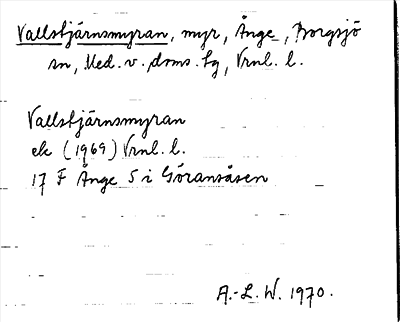 Vallstjärnsmyran, myr, Ånge, Borgsjö
sn, Med. v. doms. tg, Vrnl. l.
Vallstjärnsmyran
ek (1969) Vrnl. l.
17 F Ånge S i Göransåsen
A.-L. W. 1970.